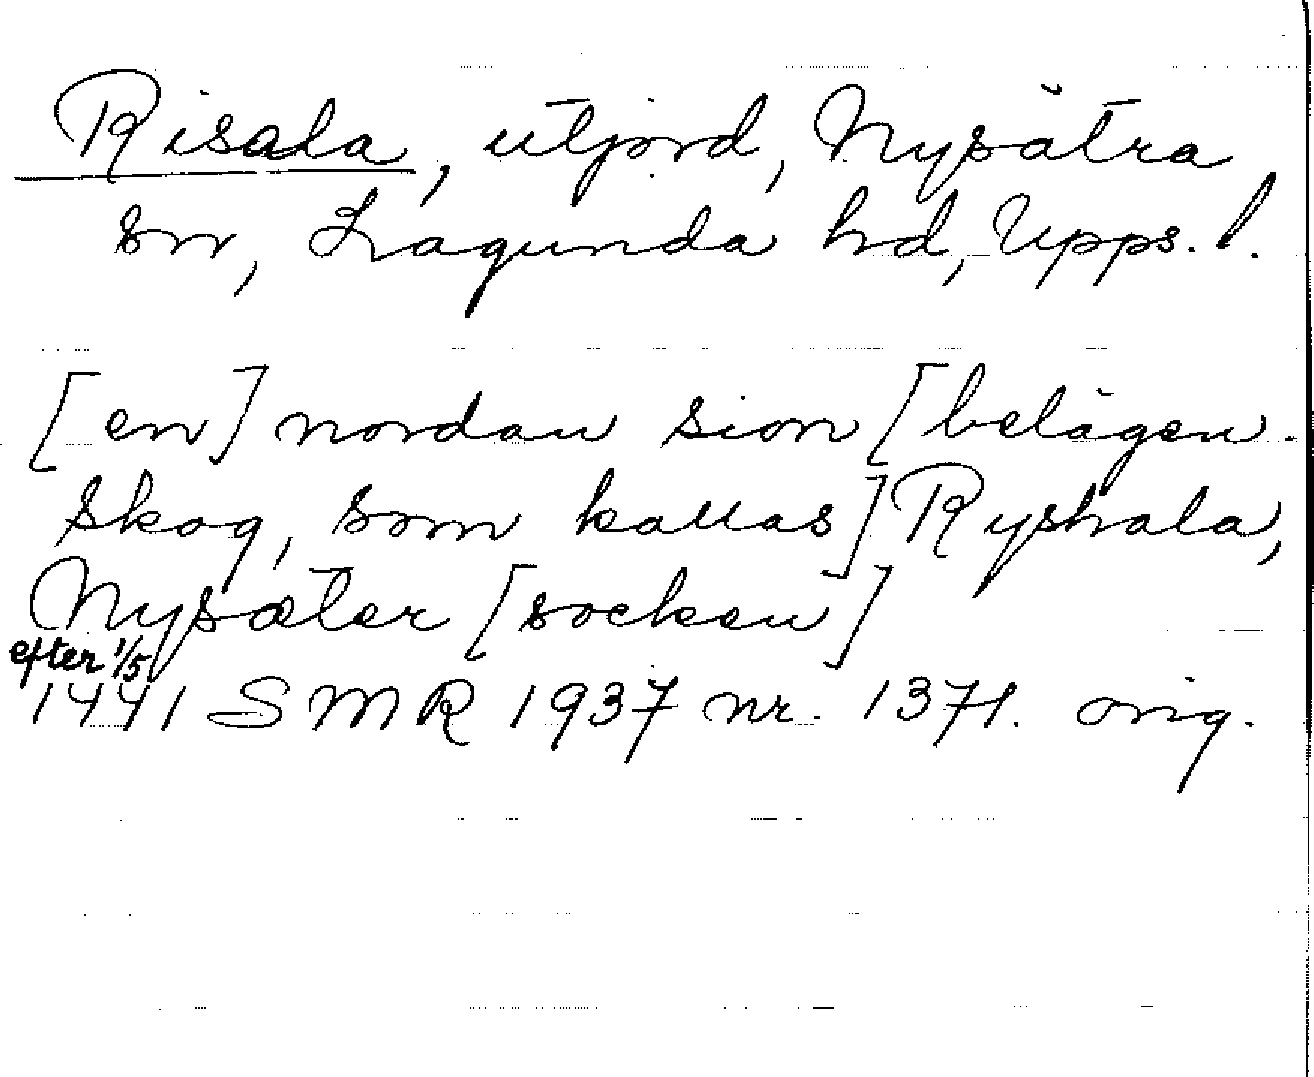 Risala, utjord, Nysätra
sn, Lagunda hd, Upps. l.
[en] nordan sion [belägen
skog, som kallas] Ryshala,
Nysæter [socken]
efter 1/5
1441 SMR 1937 nr. 1371. orig.